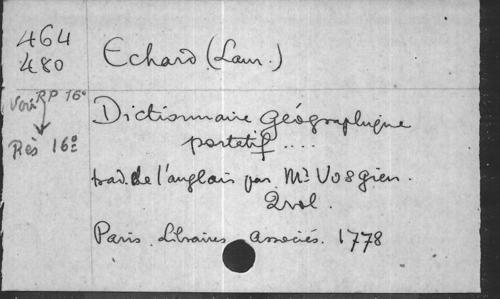 464
480
Echard (Laur.)
Voir RP 16º
Rés 16º
Dictionnaire Géographique
portatif ....
trad. de l'anglais par Mr Vosgien.
2 vol.
Paris. Libraires associés. 1778